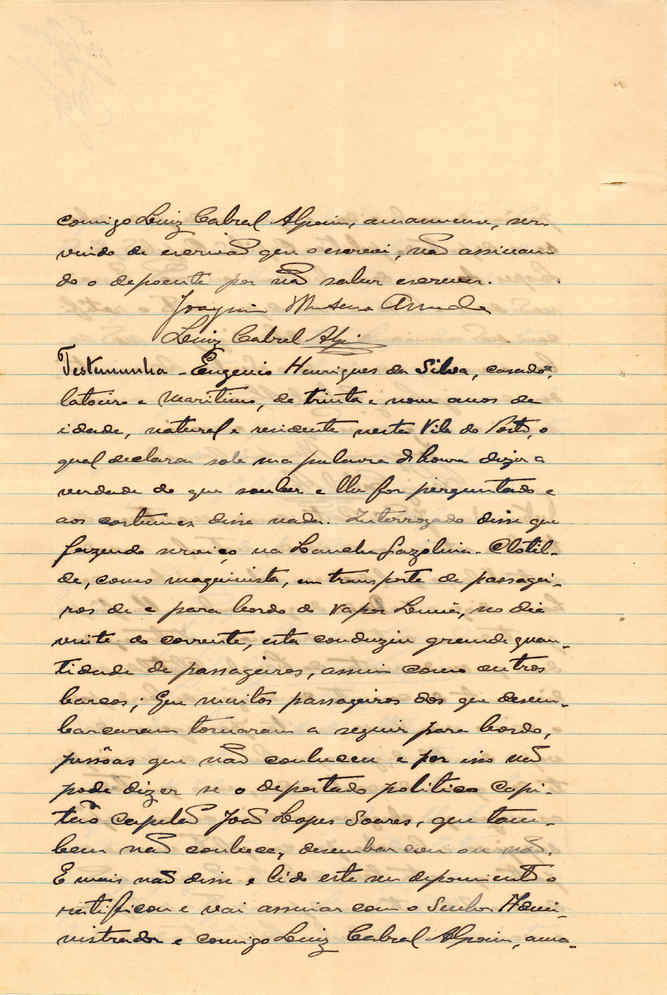 comigo Luiz Cabral Alpoim, amanuense, ser-
vindo de escrivão que o escrevi, não assinan-
do o depoente por não saber escrever.
Joaquim Monteiro Arruda
Luiz Cabral Alpoim
Testemunha - Eugenio Henriques da Silva, casado,
latoeiro e maritimo, de trinta e nove anos de
idade, natural e residente nesta Vila do Porto, o
qual declarou sob sua palavra d'honra dizer a
verdade do que souber e lhe for perguntado e
aos costumes disse nada. Interrogado disse que
fazendo serviço na Lancha Gazolina - Clotil-
de, como maquinista, em transporte de passagei-
ros de e para bordo do Vapor Lima, no dia
vinte do corrente, esta conduziu grande quan-
tidade de passageiros, assim como outros
barcos; Que muitos passageiros dos que desem-
barcaram tornaram a seguir para bordo,
pessôas que não conheceu e por isso não
pode dizer se o deportado politico capi-
tão capelão João Lopes Soares, que tam-
bem não conhece, desembarcou ou não.
E mais não disse e lido este seu depoimento o
ratificou e vai assinar com o Senhor Admi-
nistrador e comigo Luiz Cabral Alpoim, ama-